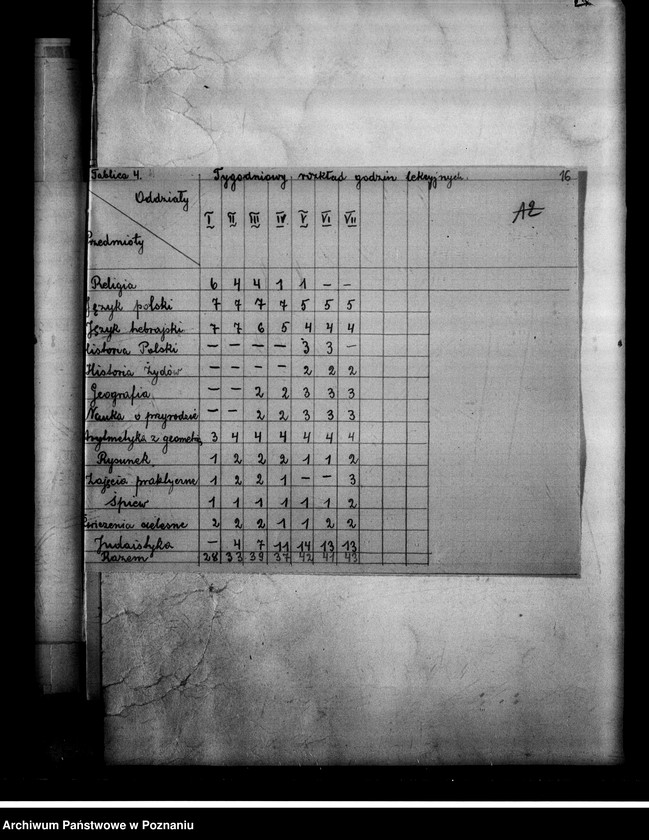 Tablica 4. Tygodniowy rozkład godzin lekcyjnych. 16
Oddziały
I II III IV V VI VII
Przedmioty
A2
Religia 6 4 4 1 1 - -
Język polski 7 7 7 7 5 5 5
Język hebrajski 7 7 6 5 4 4 4
Historia Polski - - - - 3 3 -
Historia Żydów - - - - 2 2 2
Geografia - - 2 2 3 3 3
Nauka o przyrodzie - - 2 2 3 3 3
Arytmetyka z geometrją 3 4 4 4 4 4 4
Rysunek 1 2 2 2 1 1 2
Zajęcia praktyczne 1 2 2 1 - - 3
Śpiew 1 1 1 1 1 1 2
Ćwiczenia cielesne 2 2 2 1 1 2 2
Judaistyka - 4 7 11 14 13 13
Razem 28 33 39 37 42 41 43
Archiwum Państwowe w Poznaniu